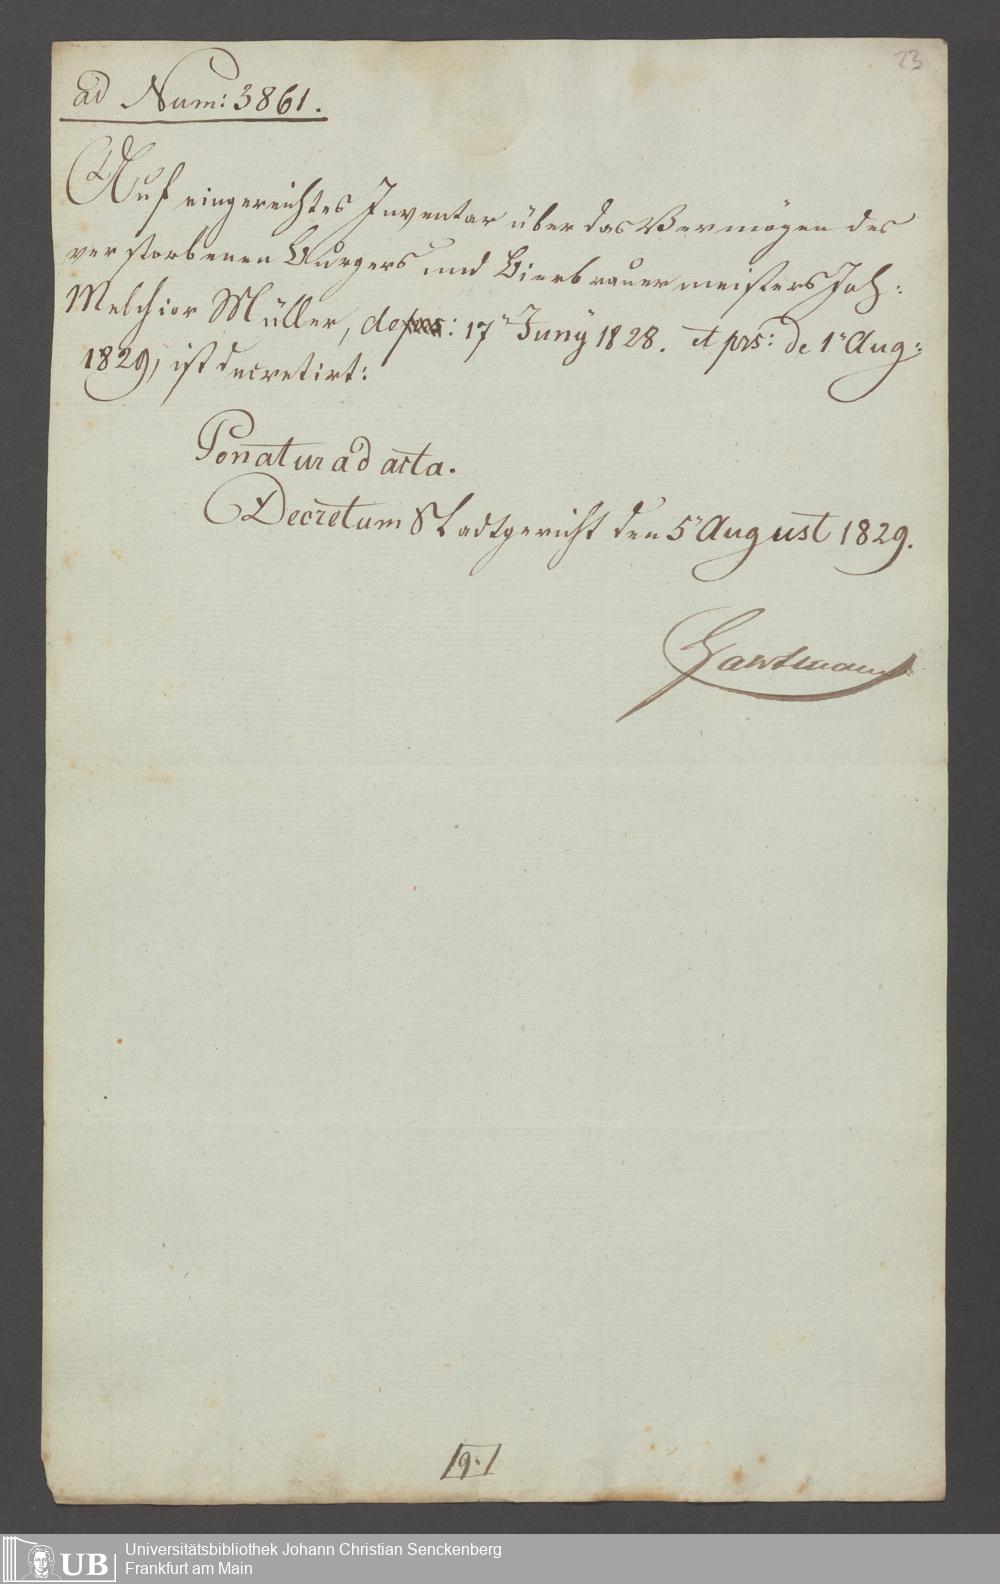 23
ad Num: 3861.
Auf eingereichtes Inventar über das Vermögen des
verstorbenen Burgers und Bierbrauermeisters Joh:
Melchior Müller, de 17n Juny 1828. et prs: de 1n Aug:
1829, ist decretirt:
Ponatur ad acta.
Decretum Stadtgericht den 5n August 1829.
Hartmann
/9./
UB
Universitätsbibliothek Johann Christian Senckenberg
Frankfurt am Main